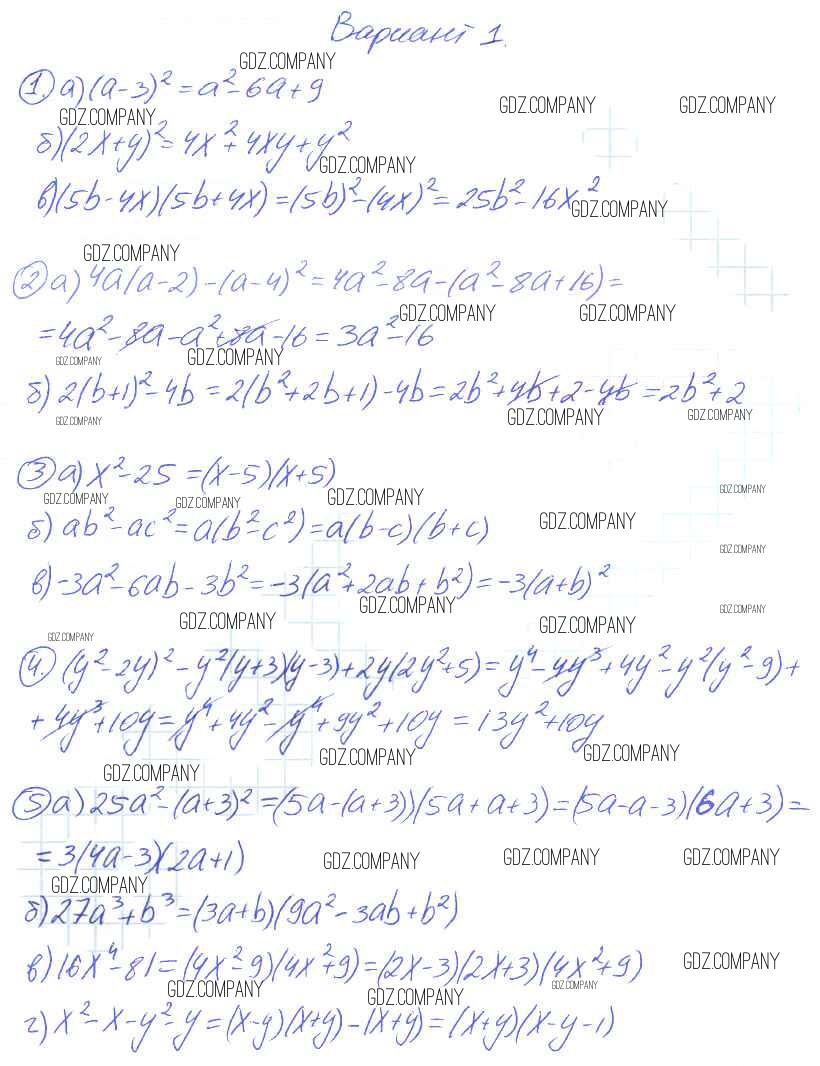 Вариант 1.
GDZ.COMPANY
1. а) (a-3)² = a²-6a+9
GDZ.COMPANY GDZ.COMPANY GDZ.COMPANY
б) (2x+y)² = 4x²+4xy+y²
GDZ.COMPANY
в) (5b-4x)(5b+4x) = (5b)²-(4x)² = 25b²-16x²
GDZ.COMPANY
GDZ.COMPANY
2 а) 4a(a-2)-(a-4)² = 4a²-8a-(a²-8a+16) =
GDZ.COMPANY GDZ.COMPANY
= 4a²-8a-a²+8a-16 = 3a²-16
GDZ.COMPANY GDZ.COMPANY
б) 2(b+1)²-4b = 2(b²+2b+1)-4b = 2b²+4b+2-4b = 2b²+2
GDZ.COMPANY GDZ.COMPANY GDZ.COMPANY
3 а) x²-25 = (x-5)(x+5)
GDZ.COMPANY GDZ.COMPANY GDZ.COMPANY GDZ.COMPANY
б) ab²-ac² = a(b²-c²) = a(b-c)(b+c)
GDZ.COMPANY
GDZ.COMPANY
в) -3a²-6ab-3b² = -3(a²+2ab+b²) = -3(a+b)²
GDZ.COMPANY GDZ.COMPANY
GDZ.COMPANY GDZ.COMPANY
GDZ.COMPANY
4. (y²-2y)²-y²(y+3)(y-3)+2y(2y²+5) = y⁴-4y³+4y²-y²(y²-9)+
+4y³+10y = y⁴+4y²-y⁴+9y²+10y = 13y²+10y
GDZ.COMPANY GDZ.COMPANY
GDZ.COMPANY
5 а) 25a²-(a+3)² = (5a-(a+3))(5a+a+3) = (5a-a-3)(6a+3) =
= 3(4a-3)(2a+1)
GDZ.COMPANY GDZ.COMPANY GDZ.COMPANY
GDZ.COMPANY
б) 27a³+b³ = (3a+b)(9a²-3ab+b²)
в) 16x⁴-81 = (4x²-9)(4x²+9) = (2x-3)(2x+3)(4x²+9)
GDZ.COMPANY
GDZ.COMPANY GDZ.COMPANY GDZ.COMPANY
г) x²-x-y²-y = (x-y)(x+y)-(x+y) = (x+y)(x-y-1)